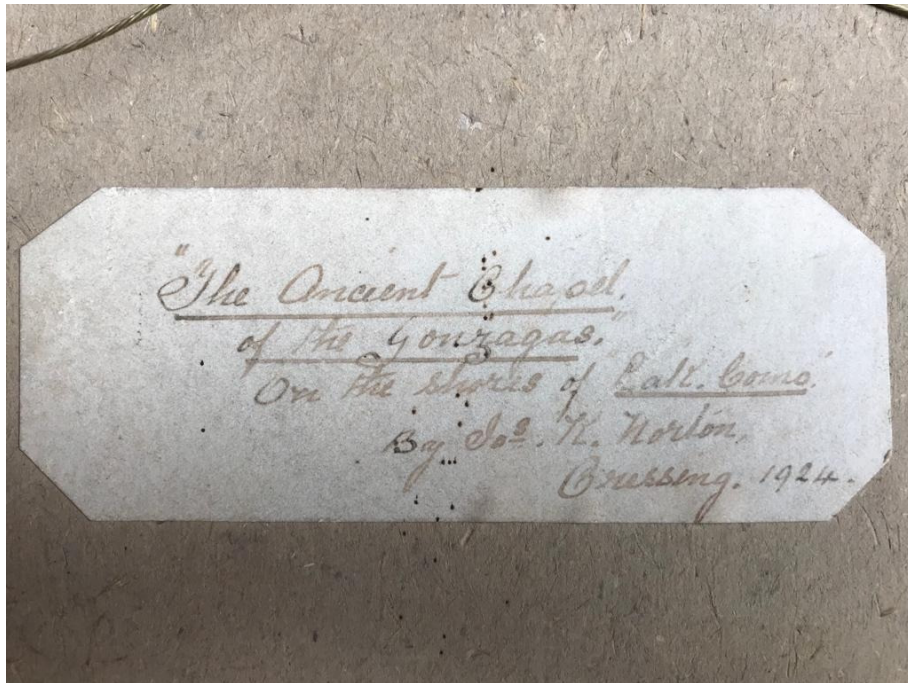 "The Ancient Chapel.
of the Gonzagas."
On the shores of "Lake. Como".
By Jos. K. Norton,
Cressing. 1924.